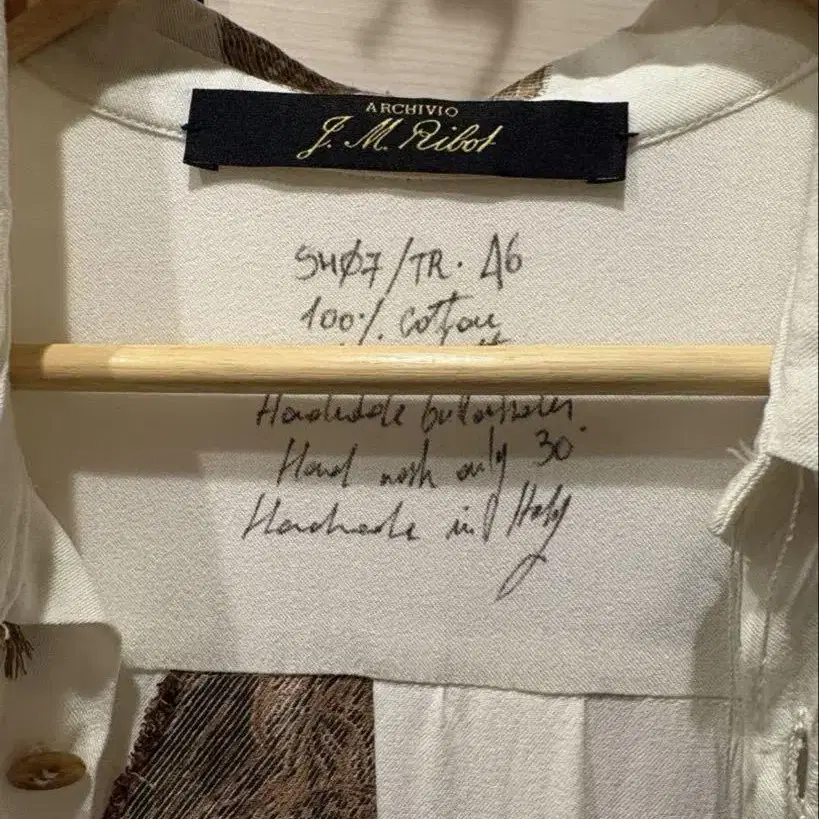 ARCHIVIO
J. M. Ribot
SHØ7/TR. 46
100% cotton
Handmade buttonholes
Hand wash only 30°
Handmade in Italy